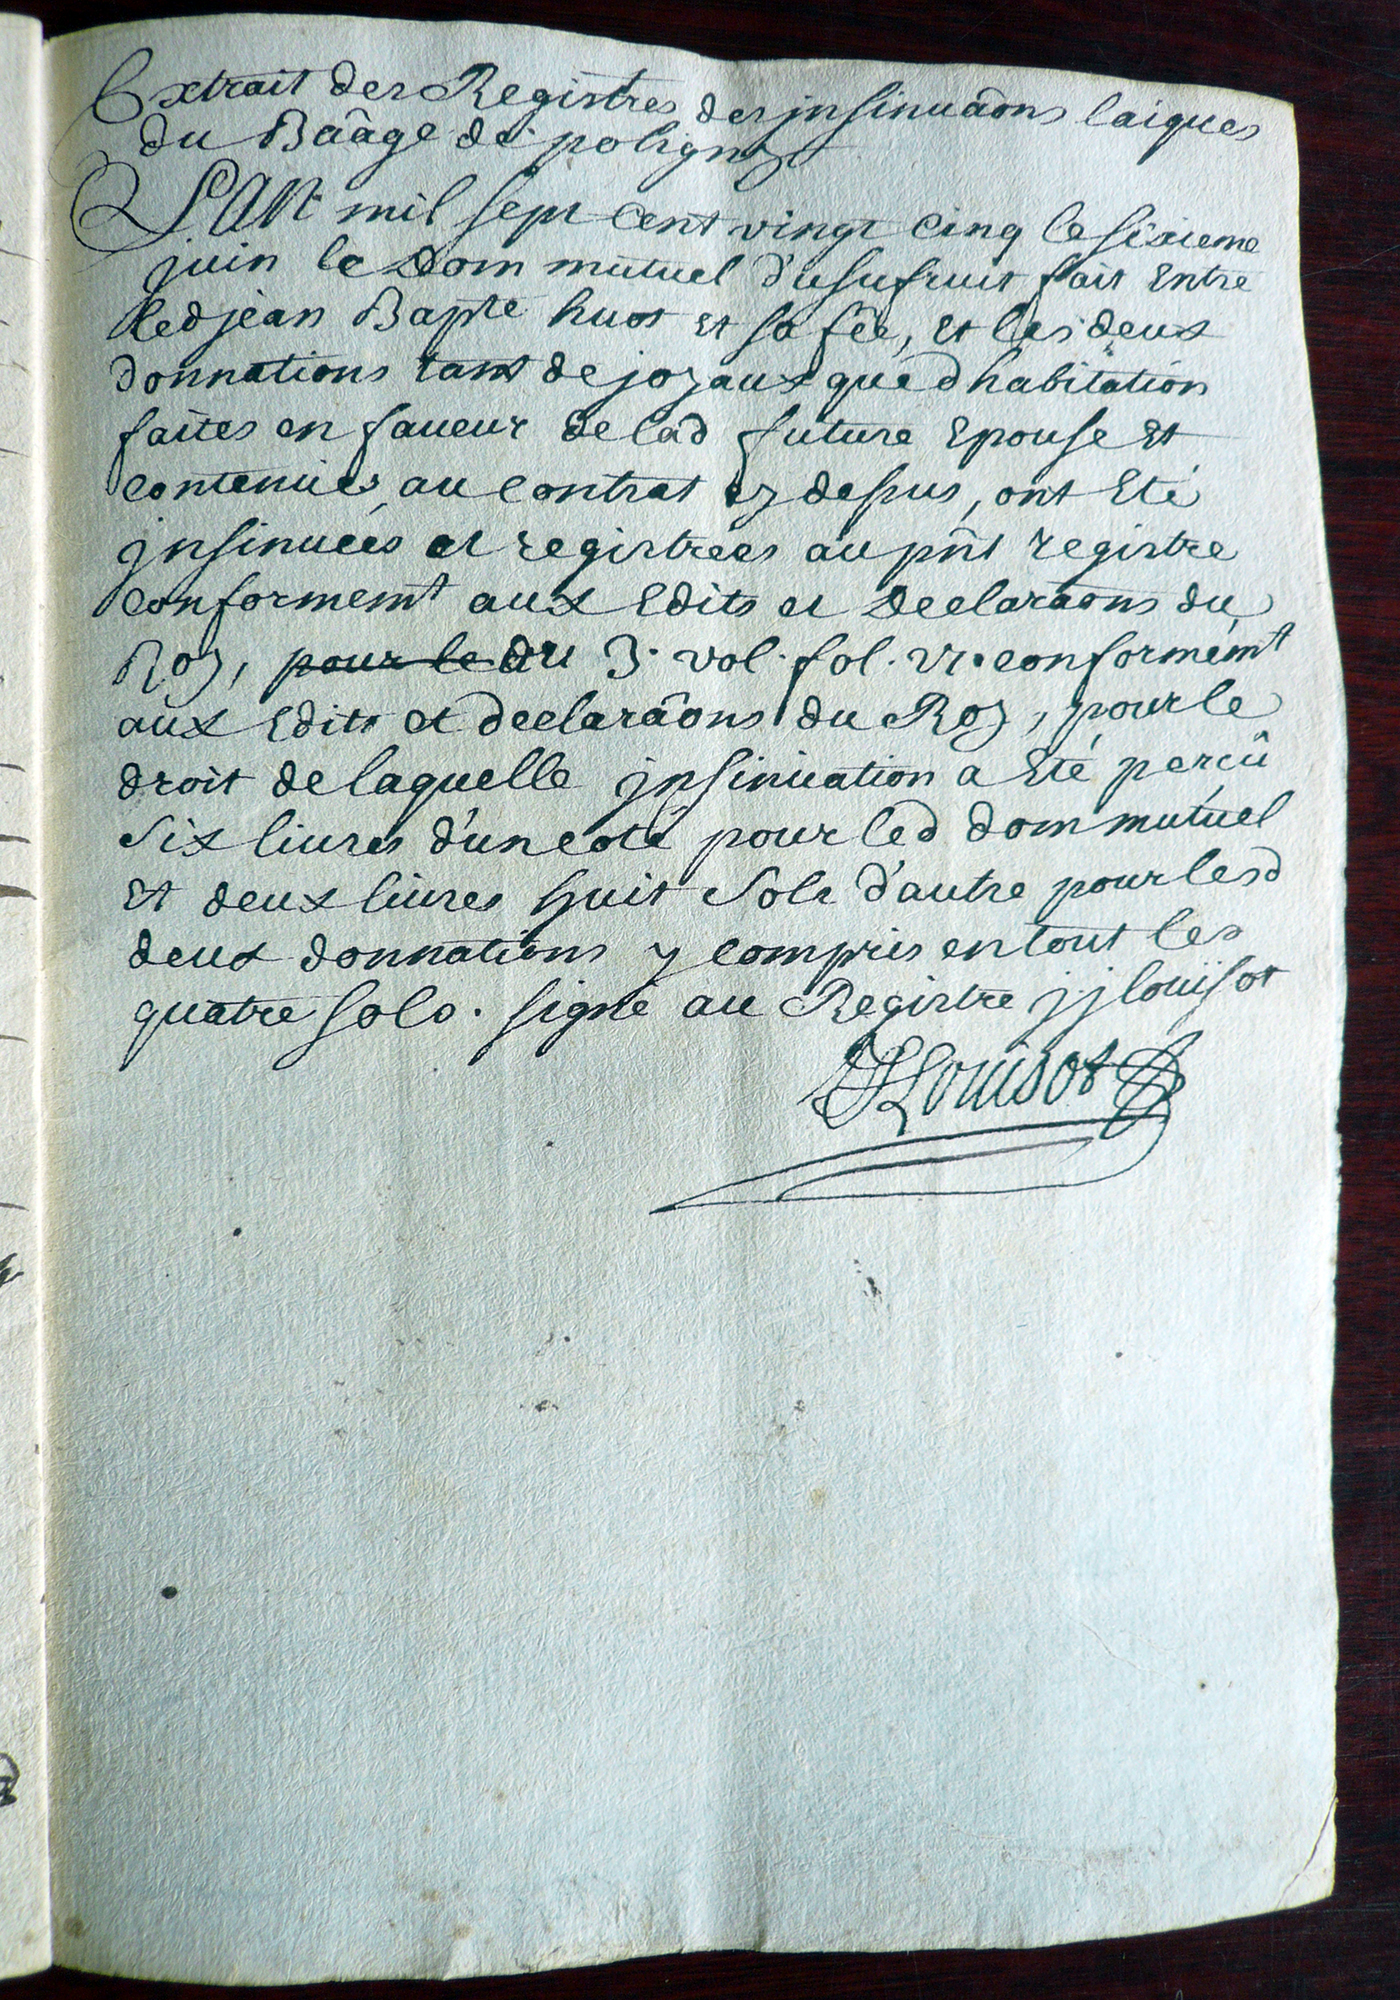 Extrait des Registres des jnsinuâons laiques
du Baâge de poligny
L'an mil sept Cent vingt Cinq le sixieme
juin le dom mutuel d'usufruit fait Entre
led jean Bapte huot et sa fée, et les deux
donnations tant de joyaux que d'habitation
faites en faueur de lad future Epouse Et
contenues au contrat cy dessus, ont Eté
jnsinuées et registrées au pnt registre
conformemt aux Edits et Declaraons du
Roy, pour le du 3. vol. fol. vi. conformemt
aux Edits et declaraôns du Roy, pour le
droit de laquelle jnsinuation a Eté perçu
six liures d'un coté pour led dom mutuel
Et deux liures huit sols d'autre pour lesd
deux donnations y compris en tout les
quatre sols. signé au Registre j j louisot
JJLouisot